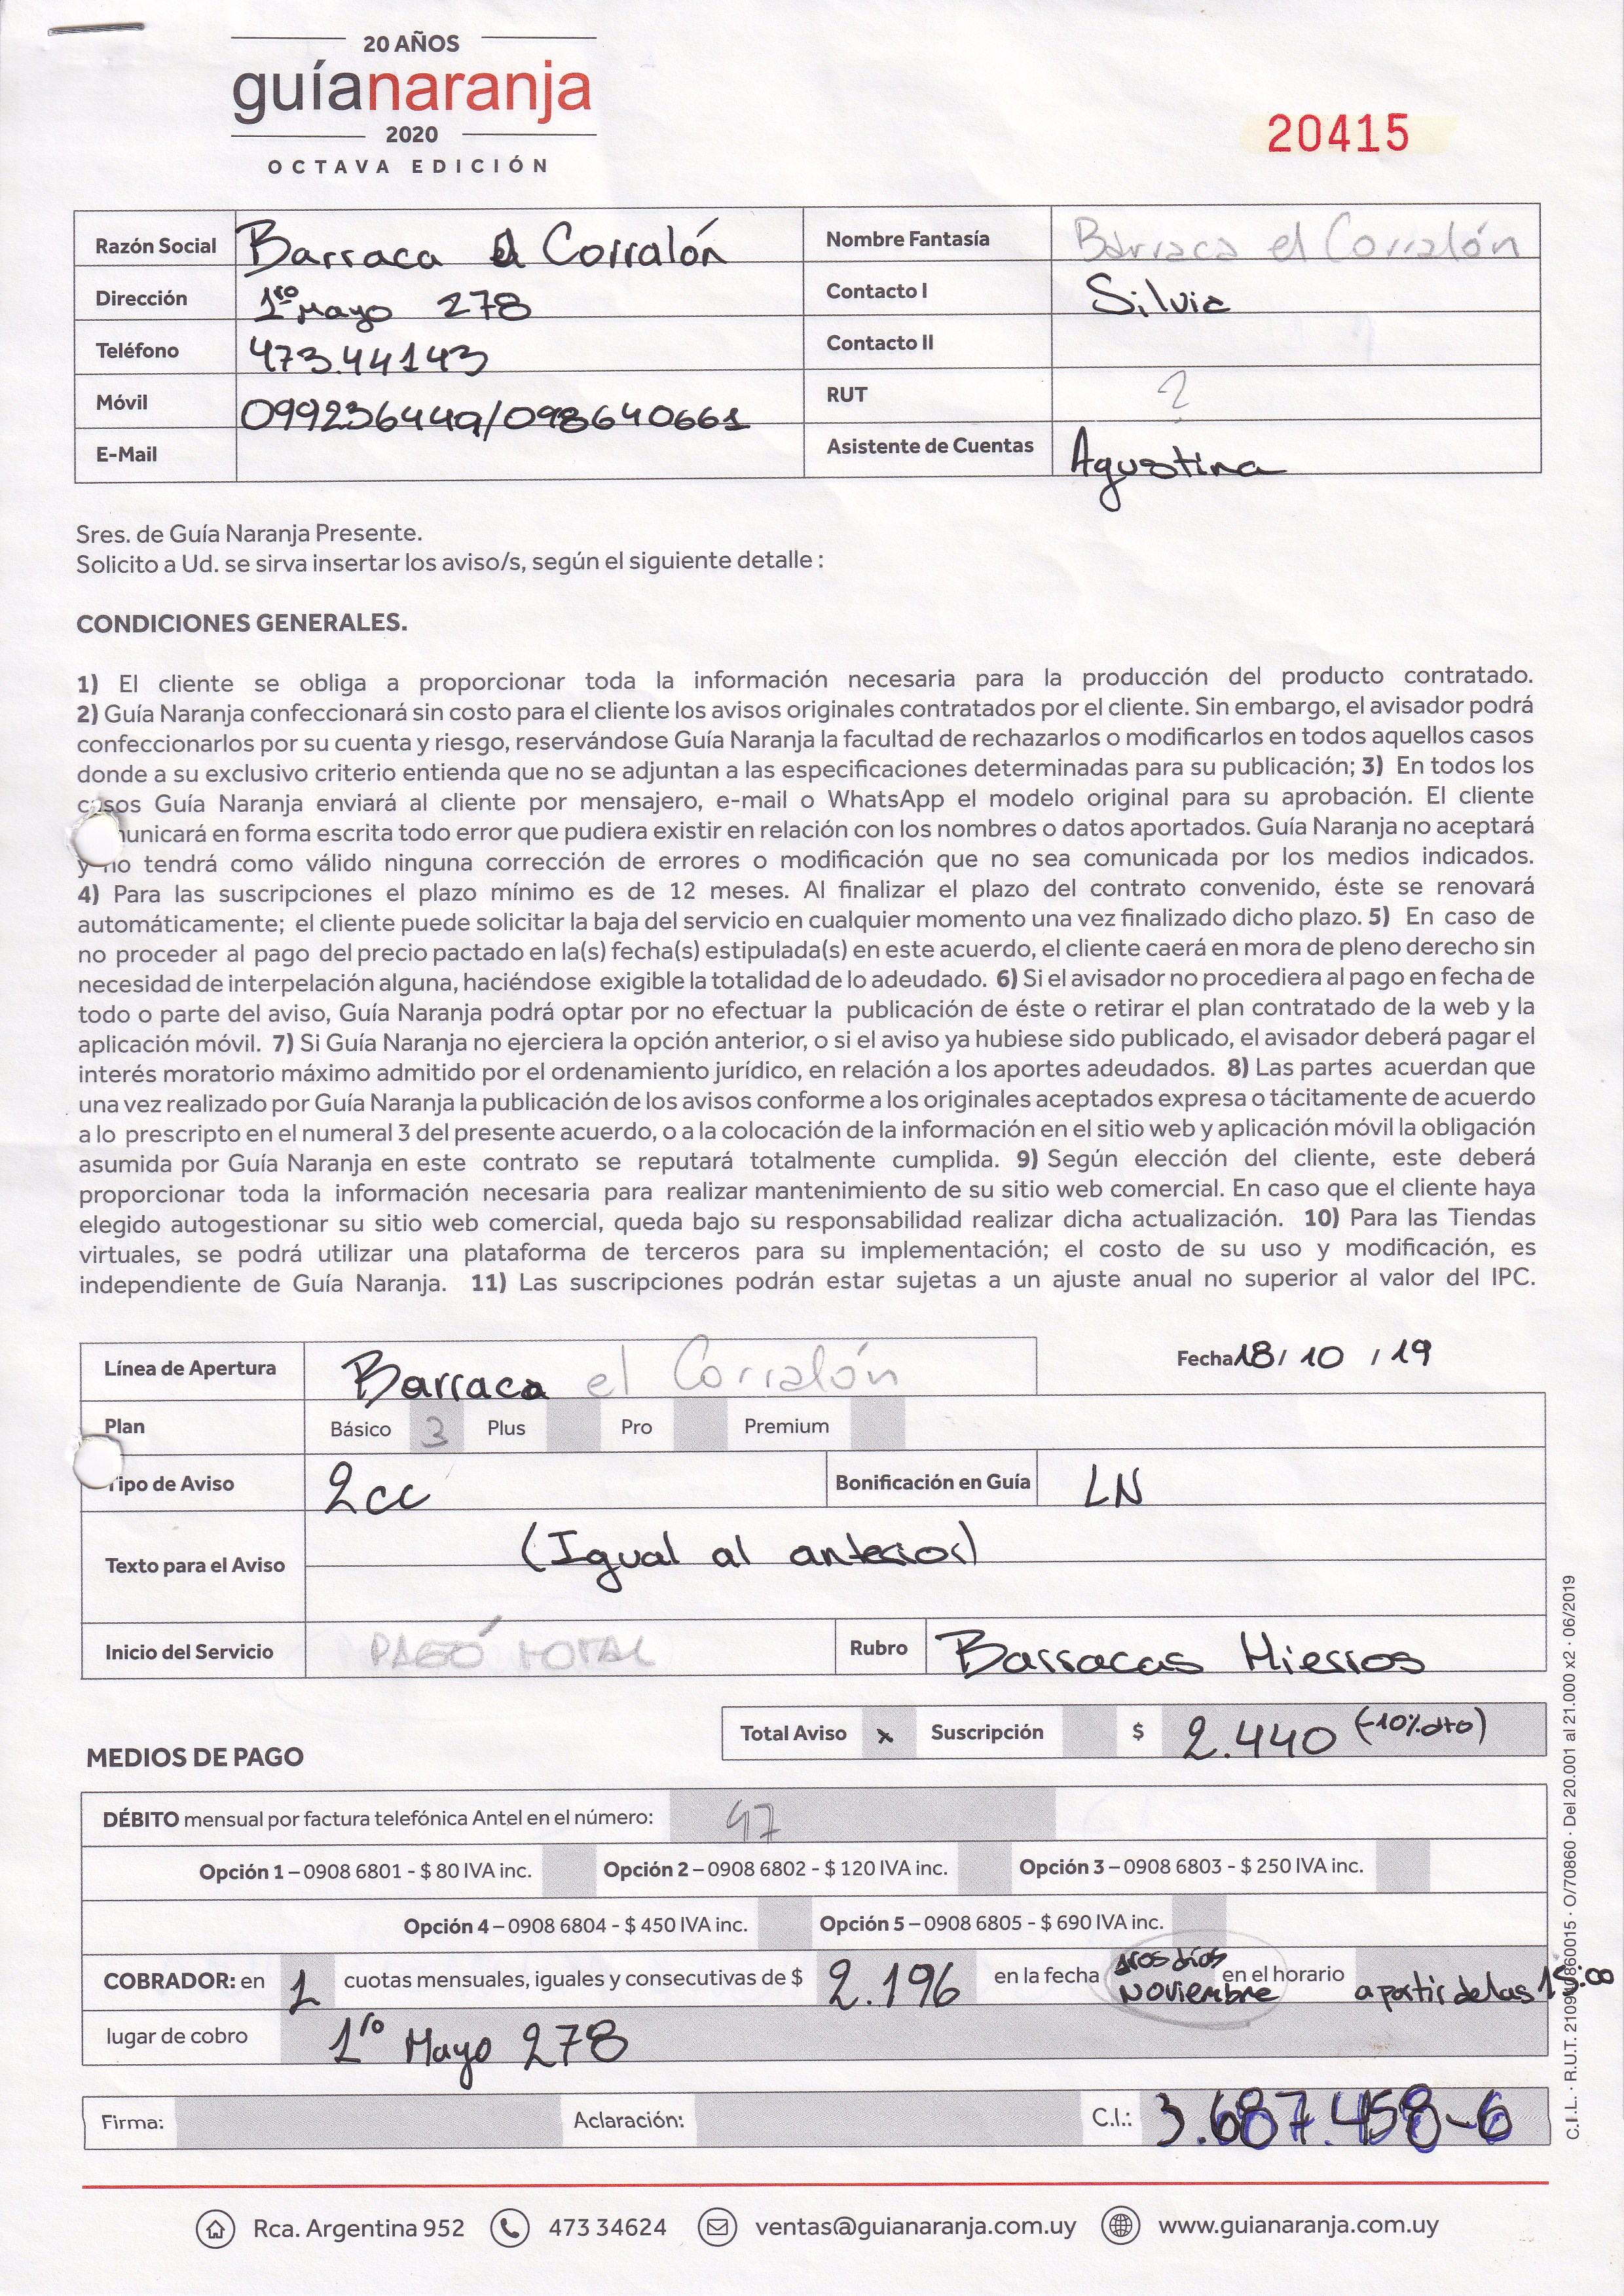 20 AÑOS
guíanaranja
2020
OCTAVA EDICIÓN
20415
Razón Social Barraca el Corralón Nombre Fantasía Barraca el Corralón
Dirección 1ro Mayo 278 Contacto I Silvia
Teléfono 473.44143 Contacto II
Móvil 099236449/098640661 RUT ?
E-Mail Asistente de Cuentas Agustina
Sres. de Guía Naranja Presente.
Solicito a Ud. se sirva insertar los aviso/s, según el siguiente detalle :
CONDICIONES GENERALES.
1) El cliente se obliga a proporcionar toda la información necesaria para la producción del producto contratado.
2) Guía Naranja confeccionará sin costo para el cliente los avisos originales contratados por el cliente. Sin embargo, el avisador podrá
confeccionarlos por su cuenta y riesgo, reservándose Guía Naranja la facultad de rechazarlos o modificarlos en todos aquellos casos
donde a su exclusivo criterio entienda que no se adjuntan a las especificaciones determinadas para su publicación; 3) En todos los
casos Guía Naranja enviará al cliente por mensajero, e-mail o WhatsApp el modelo original para su aprobación. El cliente
municará en forma escrita todo error que pudiera existir en relación con los nombres o datos aportados. Guía Naranja no aceptará
y no tendrá como válido ninguna corrección de errores o modificación que no sea comunicada por los medios indicados.
4) Para las suscripciones el plazo mínimo es de 12 meses. Al finalizar el plazo del contrato convenido, éste se renovará
automáticamente; el cliente puede solicitar la baja del servicio en cualquier momento una vez finalizado dicho plazo. 5) En caso de
no proceder al pago del precio pactado en la(s) fecha(s) estipulada(s) en este acuerdo, el cliente caerá en mora de pleno derecho sin
necesidad de interpelación alguna, haciéndose exigible la totalidad de lo adeudado. 6) Si el avisador no procediera al pago en fecha de
todo o parte del aviso, Guía Naranja podrá optar por no efectuar la publicación de éste o retirar el plan contratado de la web y la
aplicación móvil. 7) Si Guía Naranja no ejerciera la opción anterior, o si el aviso ya hubiese sido publicado, el avisador deberá pagar el
interés moratorio máximo admitido por el ordenamiento jurídico, en relación a los aportes adeudados. 8) Las partes acuerdan que
una vez realizado por Guía Naranja la publicación de los avisos conforme a los originales aceptados expresa o tácitamente de acuerdo
a lo prescripto en el numeral 3 del presente acuerdo, o a la colocación de la información en el sitio web y aplicación móvil la obligación
asumida por Guía Naranja en este contrato se reputará totalmente cumplida. 9) Según elección del cliente, este deberá
proporcionar toda la información necesaria para realizar mantenimiento de su sitio web comercial. En caso que el cliente haya
elegido autogestionar su sitio web comercial, queda bajo su responsabilidad realizar dicha actualización. 10) Para las Tiendas
virtuales, se podrá utilizar una plataforma de terceros para su implementación; el costo de su uso y modificación, es
independiente de Guía Naranja. 11) Las suscripciones podrán estar sujetas a un ajuste anual no superior al valor del IPC.
Línea de Apertura Barraca el Corralón Fecha 18/ 10 / 19
Plan Básico 3 Plus Pro Premium
Tipo de Aviso 2cc Bonificación en Guía LN
Texto para el Aviso (Igual al anterior)
Inicio del Servicio PAGÓ TOTAL Rubro Barracas Hierros
Total Aviso x Suscripción $ 2.440 (-10% dto)
MEDIOS DE PAGO
DÉBITO mensual por factura telefónica Antel en el número: 47
Opción 1 – 0908 6801 - $ 80 IVA inc. Opción 2 – 0908 6802 - $ 120 IVA inc. Opción 3 – 0908 6803 - $ 250 IVA inc.
Opción 4 – 0908 6804 - $ 450 IVA inc. Opción 5 – 0908 6805 - $ 690 IVA inc.
COBRADOR: en 1 cuotas mensuales, iguales y consecutivas de $ 2.196 en la fecha 1ros días Noviembre en el horario a partir de las 15:00
lugar de cobro 1ro Mayo 278
Firma: Aclaración: C.I.: 3.687.458-6
Rca. Argentina 952 473 34624 ventas@guianaranja.com.uy www.guianaranja.com.uy